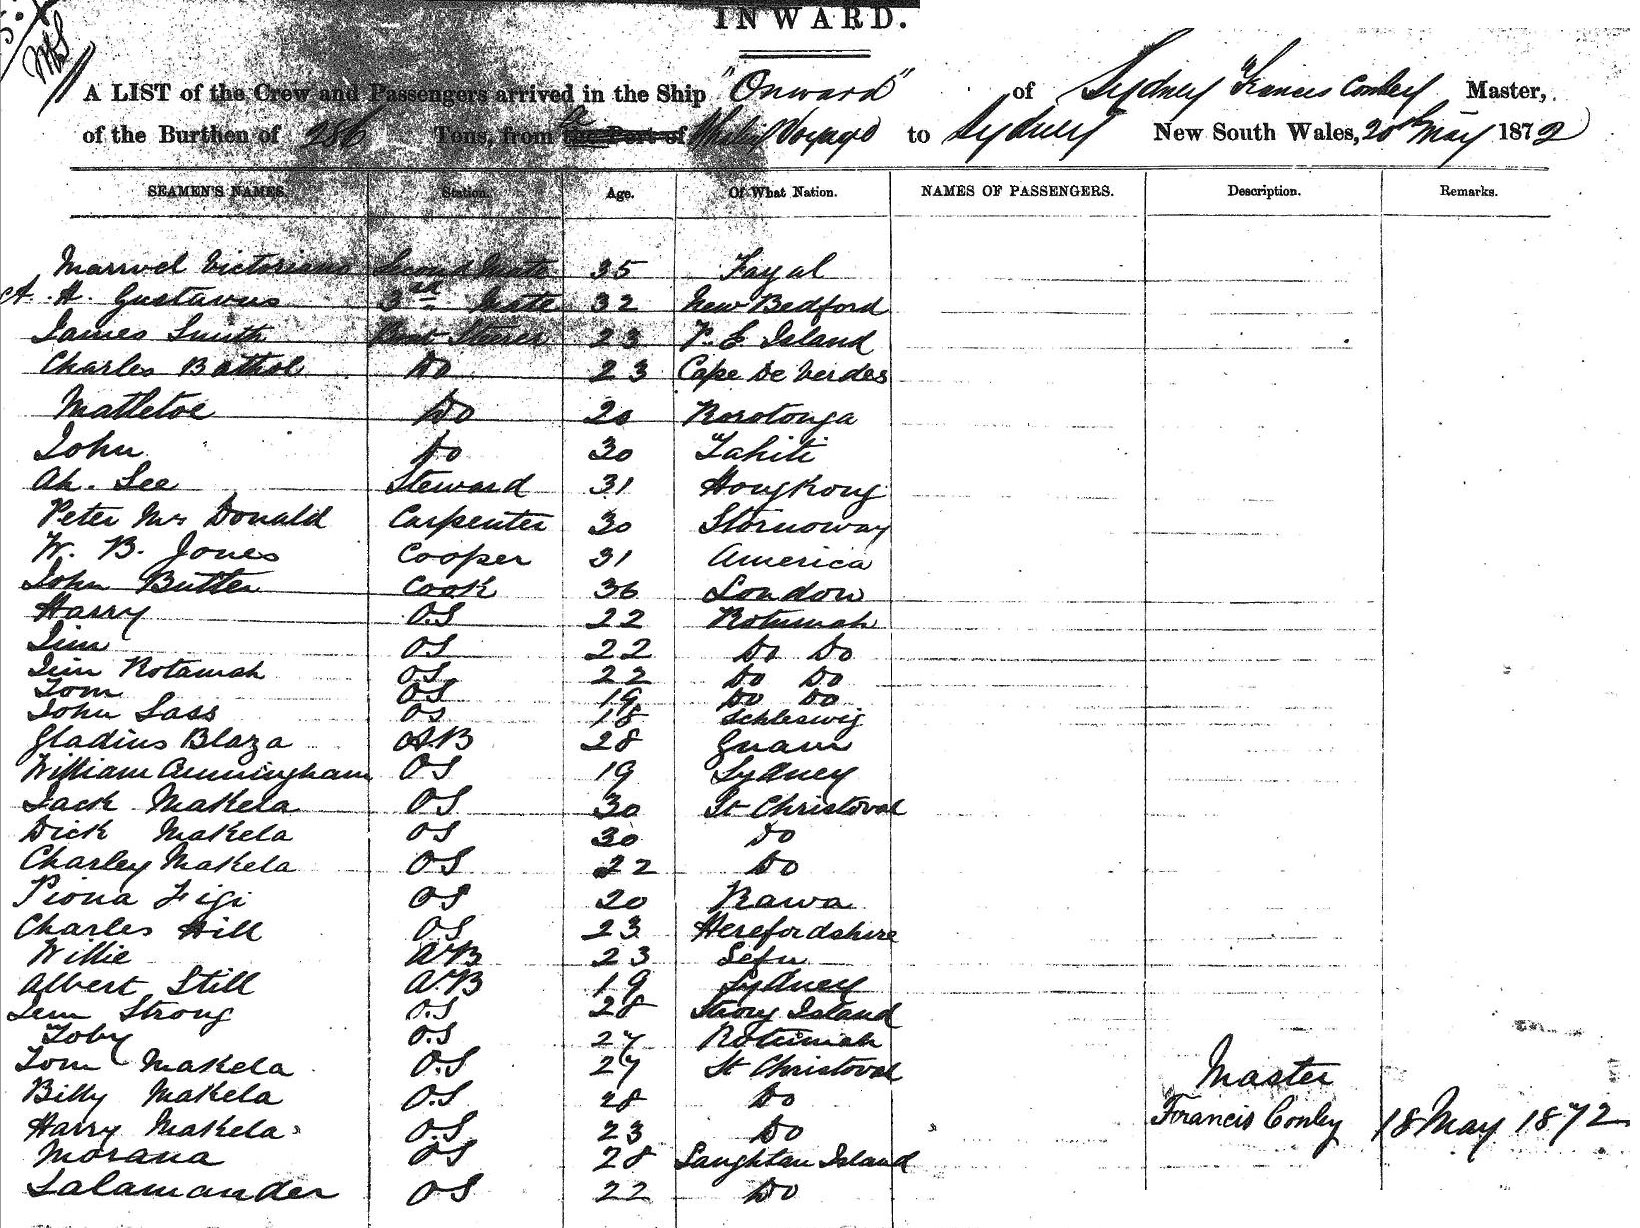 INWARD.
A LIST of the Crew and Passengers arrived in the Ship "Onward" of Sydney Francis Conley Master,
of the Burthen of 286 Tons, from a the Port of Whaling Voyage to Sydney New South Wales, 20th May 1872
SEAMEN'S NAMES. Station. Age. Of What Nation. NAMES OF PASSENGERS. Description. Remarks.
Victoriano Second Mate 35 Fayal
A. H. Gustavus 3rd Mate 32 New Bedford
James Smith Boat Steerer 23 P. E. Island
Charles Do 23 Cape De Verdes
Matletoe Do 20 Rorotonga
John Do 30 Tahiti
Ah. See Steward 31 Hong Kong
Peter Mc Donald Carpenter 30 Stornoway
W. B. Jones Cooper 31 America
John Butler Cook 36 London
Harry O.S 22 Rotumah
Jim OS 22 Do Do
Jim Rotamah OS 22 Do Do
Tom OS 19 Do Do
John Sass OS 18 Schleswig
Gladius Blaza A.B 28 Guam
William Cunningham OS 19 Sydney
Jack Makela OS 30 St Christoval
Dick Makela OS 30 Do
Charley Makela OS 22 Do
Piona Figi OS 20 Rawa
Charles Hill O.S 23 Herefordshire
Willie A.B 23 Lefu
Albert Still A.B 19 Sydney
Jem Strong O.S 28 Strong Island
Toby O.S 27 Rotumah
Tom Makela O.S 27 St Christoval
Billy Makela O.S 28 Do
Harry Makela O.S 23 Do
Morana OS 28 Laughlan Island
Salamander OS 22 Do
Master
Francis Conley 18 May 1872